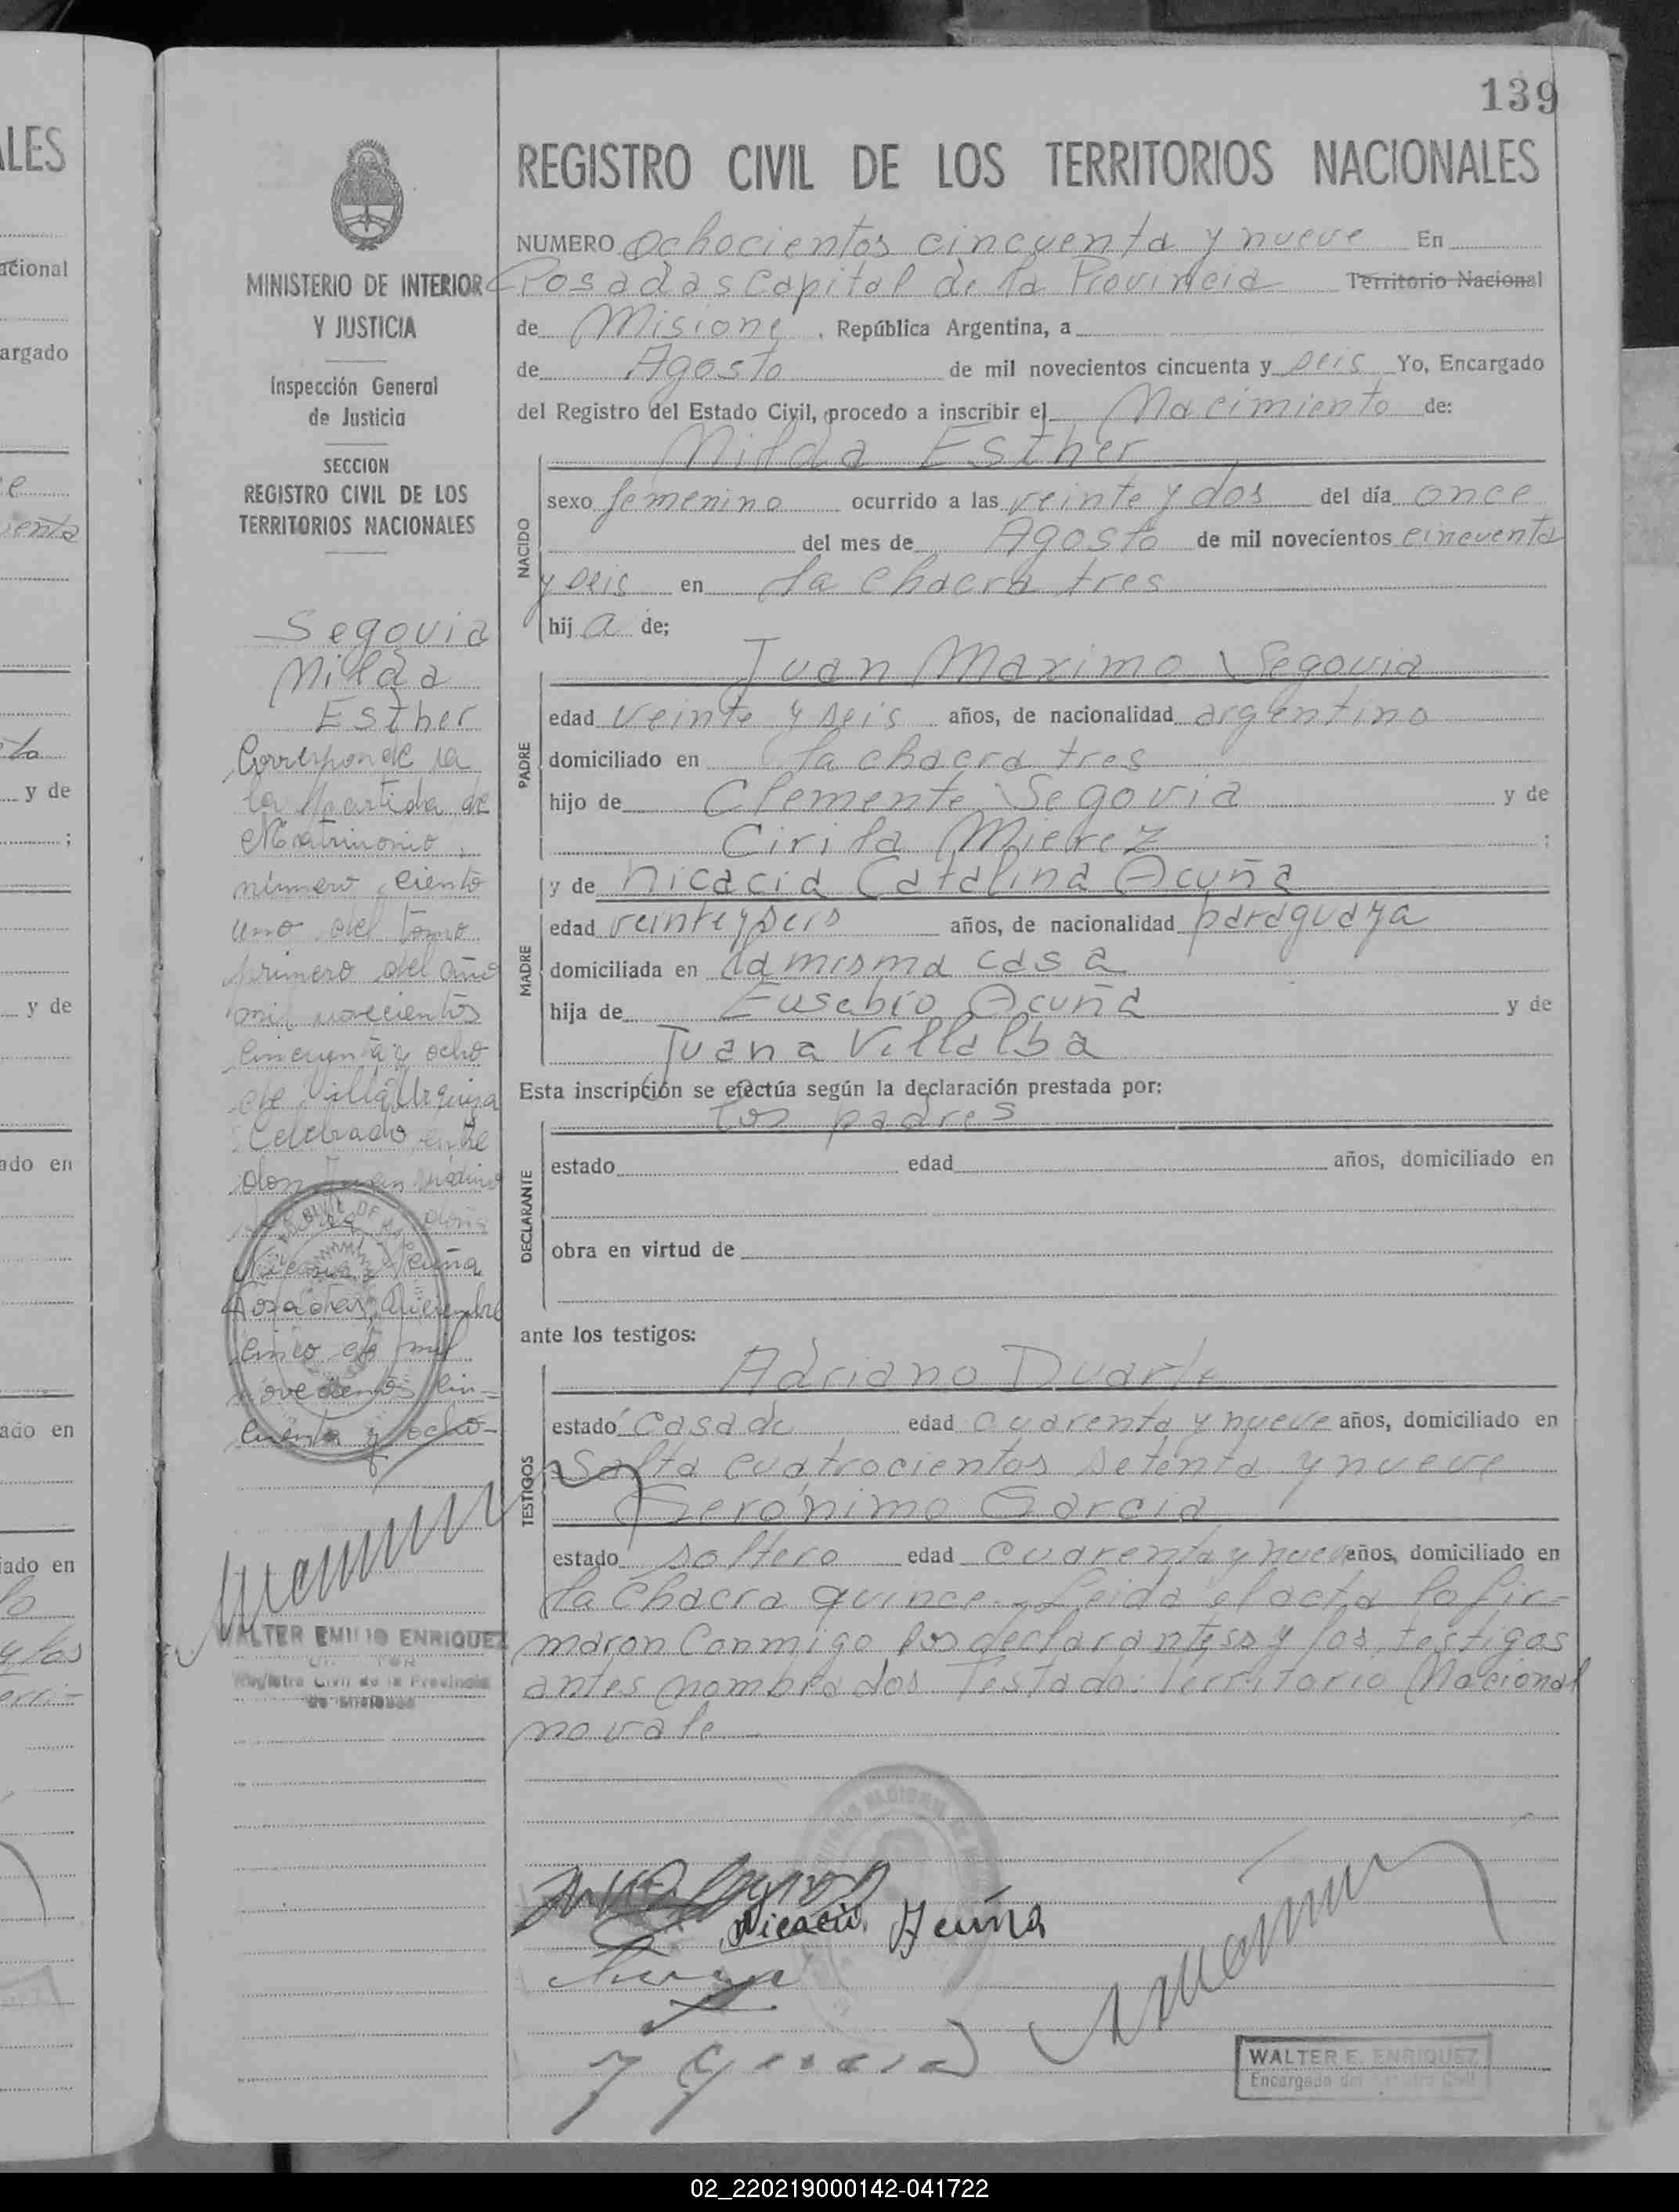 139
REGISTRO CIVIL DE LOS TERRITORIOS NACIONALES
NUMERO Ochocientos cincuenta y nueve En
Posadas Capital de la Provincia Territorio Nacional
de Misione, República Argentina, a
de Agosto de mil novecientos cincuenta y seis Yo, Encargado
del Registro del Estado Civil, procedo a inscribir el Nacimiento de:
Nilda Esther
NACIDO
sexo femenino ocurrido a las veinte y dos del día once
del mes de Agosto de mil novecientos cincuenta
y seis en la chacra tres
hij a de;
Juan Maximo Segovia
PADRE
edad veinte y seis años, de nacionalidad argentino
domiciliado en la chacra tres
hijo de Clemente Segovia y de
Cirila Mierez ;
y de Nicacia Catalina Acuña
MADRE
edad veinte y seis años, de nacionalidad paraguaya
domiciliada en la misma casa
hija de Eusebio Acuña y de
Juana Villalba
Esta inscripción se efectúa según la declaración prestada por:
los padres
DECLARANTE
estado edad años, domiciliado en
obra en virtud de
ante los testigos:
Adriano Duarte
TESTIGOS
estado casado edad cuarenta y nueve años, domiciliado en
Salta cuatrocientos setenta y nueve
Gerónimo Garcia
estado soltero edad cuarenta y nueve años, domiciliado en
la Chacra quince. Leida el acta la fir-
maron conmigo los declarantes y los testigos
antes nombrados Testado: Territorio Nacional
no vale
Nicacia Acuña
J Garcia
WALTER E. ENRIQUEZ
Encargado del Registro Civil
MINISTERIO DE INTERIOR
Y JUSTICIA
Inspección General
de Justicia
SECCION
REGISTRO CIVIL DE LOS
TERRITORIOS NACIONALES
Segovia
Nilda
Esther
Corresponde a
la Partida de
Matrimonio
número ciento
uno del tomo
primero del año
mil novecientos
cincuenta y ocho
de Villa Urquiza
Celebrado entre
don Juan Máximo
Segovia y doña
Nicacia Acuña
Posadas, Diciembre
cinco de mil
novecientos cin-
cuenta y ocho-
WALTER EMILIO ENRIQUEZ
Registro Civil de la Provincia
de Misiones
LES
acional
argado
y de
y de
ado en
ado en
iado en
02_220219000142-041722